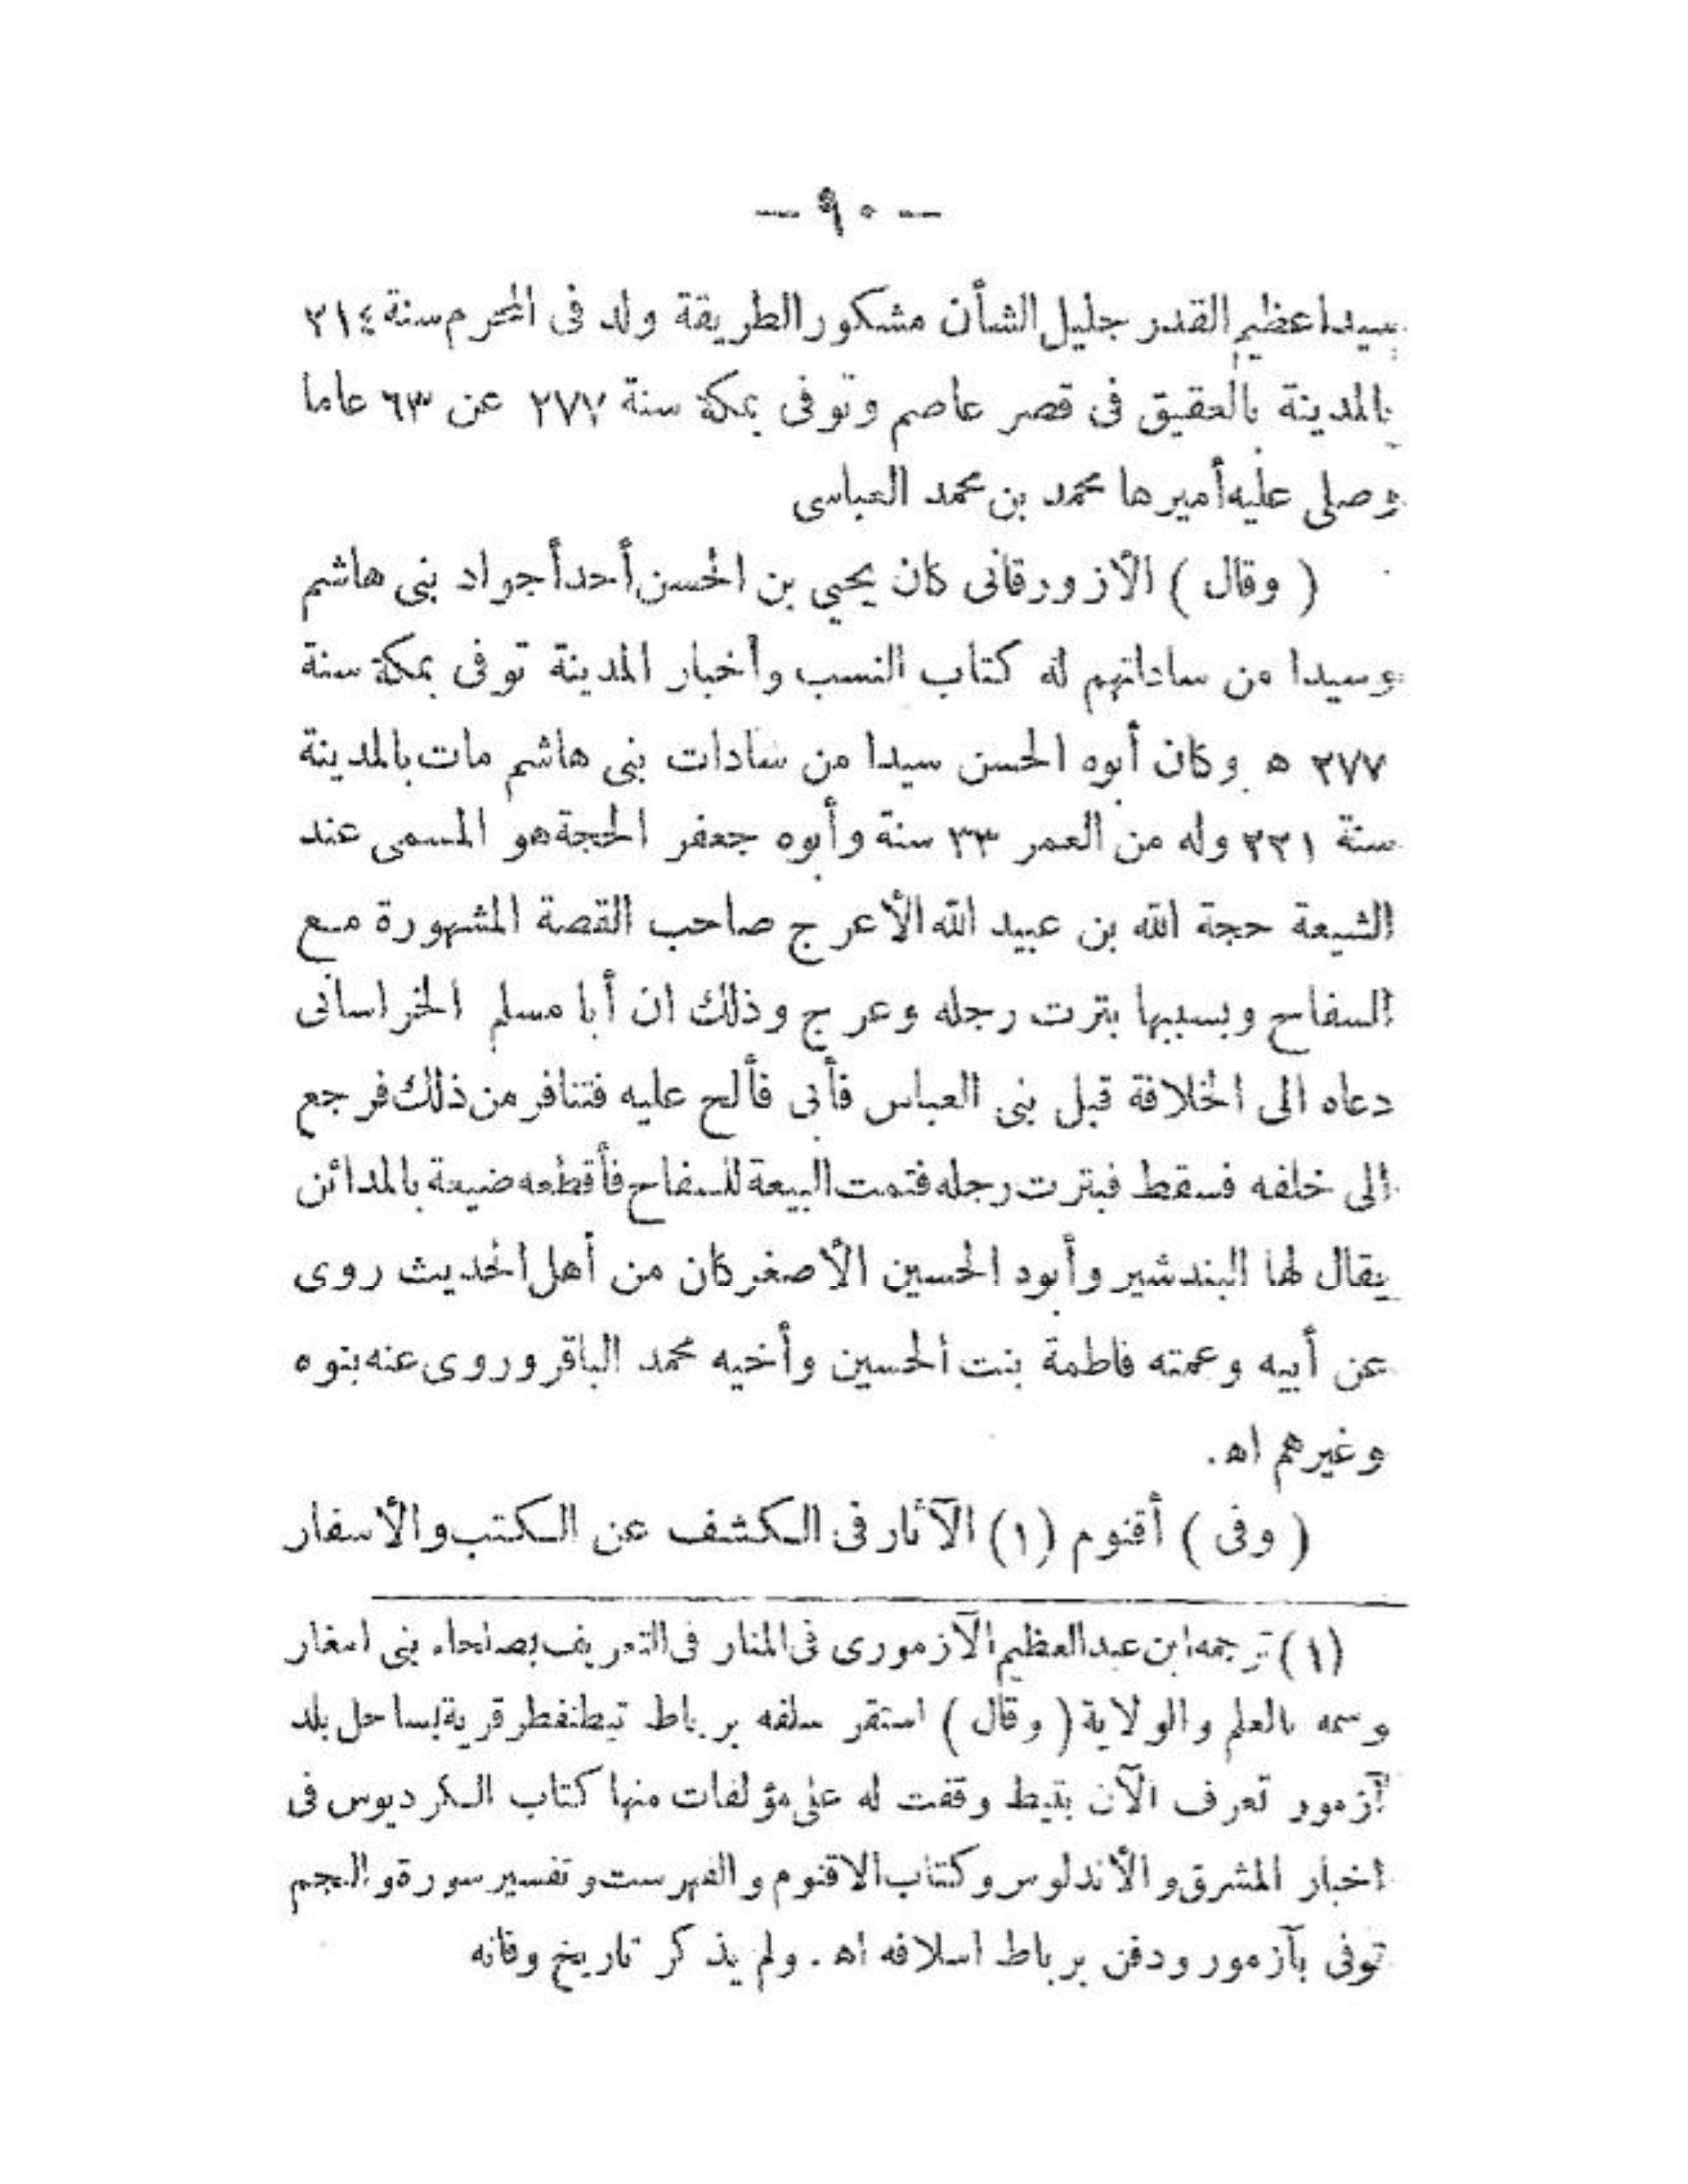 — ٩٠ —
سيدا عظيم القدر جليل الشأن مشكور الطريقة ولد فى المحرم سنة ٢١٤
بالمدينة بالعقيق فى قصر عاصم وتوفى بمكة سنة ٢٧٧ عن ٦٣ عاما
وصلى عليه أميرها محمد بن محمد العباسى
( وقال ) الأزورقانى كان يحيي بن الحسن أحد أجواد بنى هاشم
وسيدا من ساداتهم له كتاب النسب وأخبار المدينة توفى بمكة سنة
٢٧٧ ه وكان أبوه الحسن سيدا من سادات بنى هاشم مات بالمدينة
سنة ٢٢١ وله من العمر ٣٣ سنة وأبوه جعفر الحجة هو المسمى عند
الشيعة حجة الله بن عبيد الله الأعرج صاحب القصة المشهورة مع
السفاح وبسببها بترت رجله وعرج وذلك ان أبا مسلم الخراسانى
دعاه الى الخلافة قبل بنى العباس فأبى فألح عليه فتنافر من ذلك فرجع
الى خلفه فسقط فبترت رجله فتمت البيعة للسفاح فأقطعه ضيعة بالمدائن
يقال لها البندشير وأبوه الحسين الأصغر كان من أهل الحديث روى
عن أبيه وعمته فاطمة بنت الحسين وأخيه محمد الباقر وروى عنه بنوه
وغيرهم اه.
( وفى ) أقنوم (١) الآثار فى الكشف عن الكتب والأسفار
(١) ترجمه ابن عبد العظيم الآزمورى فى المنار فى التعريف بصلحاء بنى امغار
وسمه بالعلم والولاية ( وقال ) استقر سلفه برباط تيطنفطر قرية بساحل بلد
آزمور تعرف الآن بتيط وقفت له على مؤلفات منها كتاب الكرديوس فى
اخبار المشرق والأندلوس وكتاب الاقنوم والفهرست وتفسير سورة والنجم
توفى بآزمور ودفن برباط اسلافه اه. ولم يذكر تاريخ وفاته